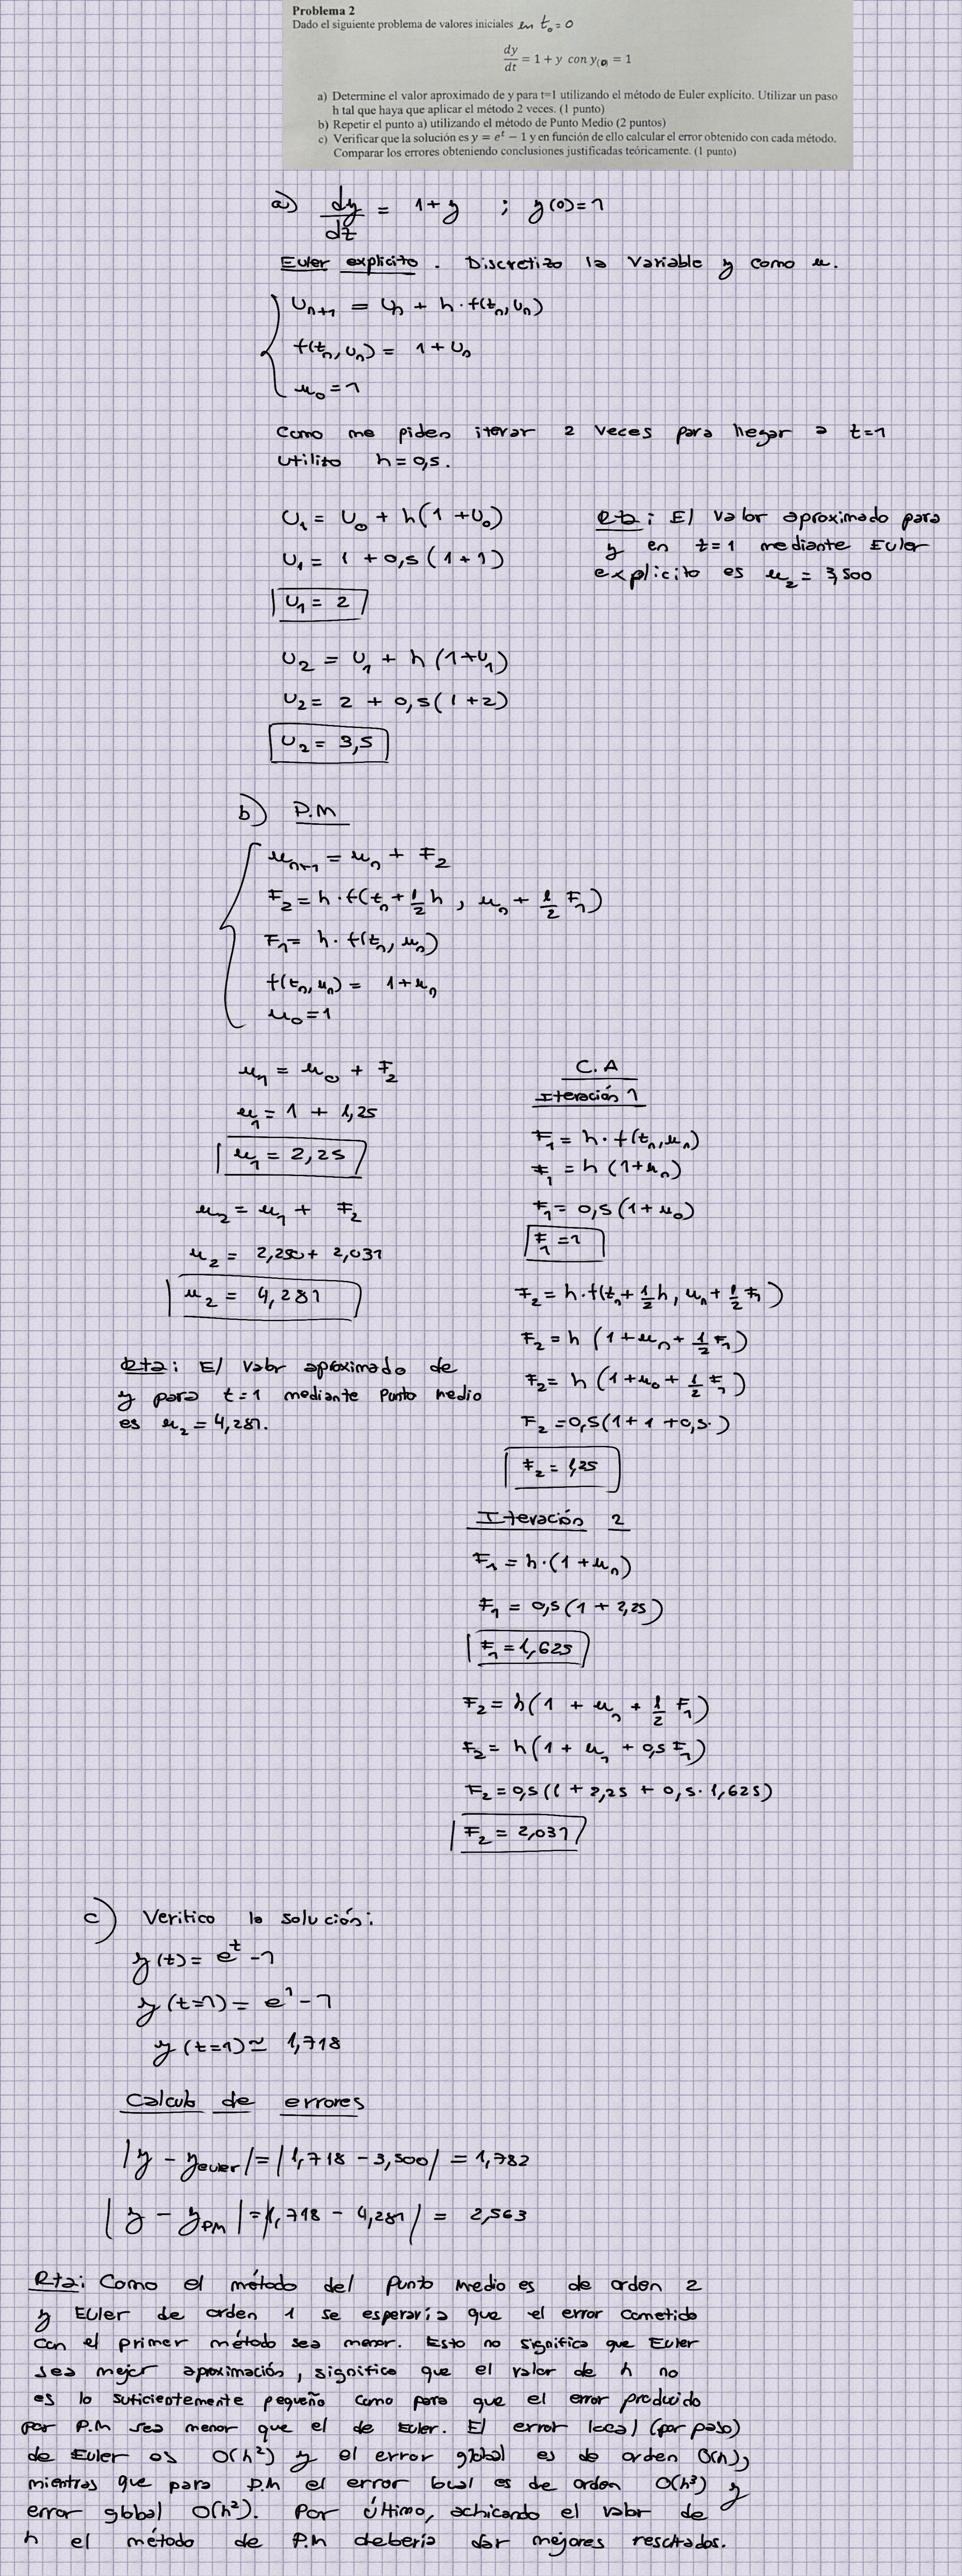 Problema 2
Dado el siguiente problema de valores iniciales en t₀ = 0
dy/dt = 1 + y con y(0) = 1
a) Determine el valor aproximado de y para t=1 utilizando el método de Euler explícito. Utilizar un paso
h tal que haya que aplicar el método 2 veces. (1 punto)
b) Repetir el punto a) utilizando el método de Punto Medio (2 puntos)
c) Verificar que la solución es y = e^t − 1 y en función de ello calcular el error obtenido con cada método.
Comparar los errores obteniendo conclusiones justificadas teóricamente. (1 punto)
a) dy/dt = 1 + y ; y(0) = 1
Euler explícito. Discretizo la variable y como u.
Un+1 = Un + h·f(tn, Un)
f(tn, Un) = 1 + Un
u0 = 1
Como me piden iterar 2 veces para llegar a t=1
utilizo h = 0,5.
U1 = U0 + h(1 + U0)
U1 = 1 + 0,5(1+1)
U1 = 2
U2 = U1 + h(1+U1)
U2 = 2 + 0,5(1+2)
U2 = 3,5
Rta: El valor aproximado para
y en t=1 mediante Euler
explícito es u2 = 3,500
b) P.M
un+1 = un + F2
F2 = h·f(tn + 1/2 h, un + 1/2 F1)
F1 = h·f(tn, un)
f(tn, un) = 1 + un
u0 = 1
u1 = u0 + F2
u1 = 1 + 1,25
u1 = 2,25
u2 = u1 + F2
u2 = 2,250 + 2,031
u2 = 4,281
Rta: El valor aproximado de
y para t=1 mediante Punto medio
es u2 = 4,281.
C.A
Iteración 1
F1 = h·f(tn, un)
F1 = h(1+un)
F1 = 0,5(1+u0)
F1 = 1
F2 = h·f(tn + 1/2 h, un + 1/2 F1)
F2 = h(1 + un + 1/2 F1)
F2 = h(1 + u0 + 1/2 F1)
F2 = 0,5(1+1+0,5·)
F2 = 1,25
Iteración 2
F1 = h·(1+un)
F1 = 0,5(1+2,25)
F1 = 1,625
F2 = h(1 + un + 1/2 F1)
F2 = h(1 + u1 + 0,5 F1)
F2 = 0,5(1 + 2,25 + 0,5·1,625)
F2 = 2,031
c) Verifico la solución:
y(t) = e^t − 1
y(t=1) = e^1 − 1
y(t=1) ≃ 1,718
Calculo de errores
|y − yeuler| = |1,718 − 3,500| = 1,782
|y − yPM| = |1,718 − 4,281| = 2,563
Rta: Como el método del Punto medio es de orden 2
y Euler de orden 1 se esperaría que el error cometido
con el primer método sea menor. Esto no significa que Euler
sea mejor aproximación, significa que el valor de h no
es lo suficientemente pequeño como para que el error producido
por P.M sea menor que el de Euler. El error local (por paso)
de Euler es O(h²) y el error global es de orden O(h),
mientras que para P.M el error local es de orden O(h³) y
error global O(h²). Por último, achicando el valor de
h el método de P.M debería dar mejores resultados.